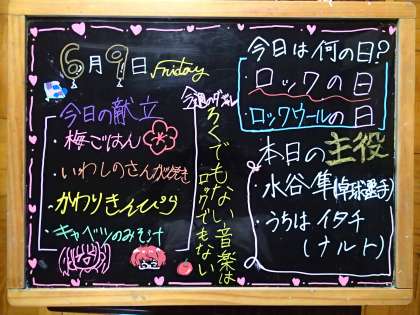 6月9日 Friday
今日の献立
・梅ごはん
・いわしのさんが焼き
・かわりきんぴら
・キャベツのみそ汁
今週のダジャレ
ろくでもない音楽は
ロックでもない
今日は何の日?
・ロックの日
・ロックウールの日
本日の主役
・水谷隼(卓球選手)
・うちはイタチ
(ナルト)